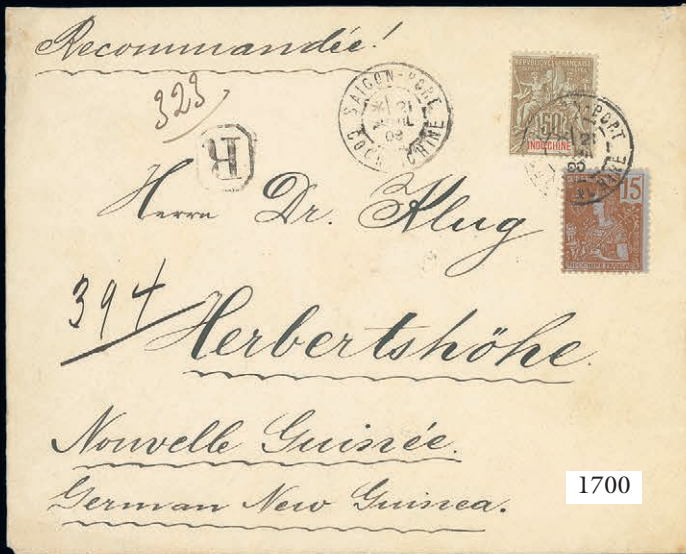 Recommandée!
323
R
SAIGON-PORT
21
COCHINCHINE
REPUBLIQUE FRANÇAISE
50
INDOCHINE
PORT
21
15
Herrn Dr. Klug
394
Herbertshöhe.
Nouvelle Guinée.
German New Guinea.
1700